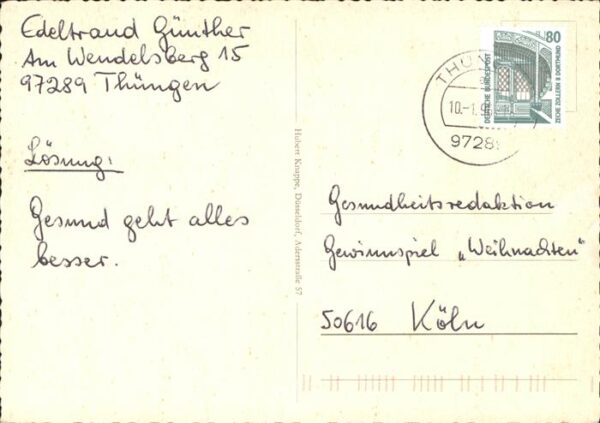 Edeltraud Günther
Am Wendelsberg 15
97289 Thüngen
Lösung:
Gesund geht alles
besser.
Hubert Knappe, Düsseldorf, Adersstraße 57
80
DEUTSCHE BUNDESPOST
ZECHE ZOLLERN II DORTMUND
THÜN
10.-1.9
9728
Gesundheitsredaktion
Gewinnspiel „Weihnachten"
50616 Köln